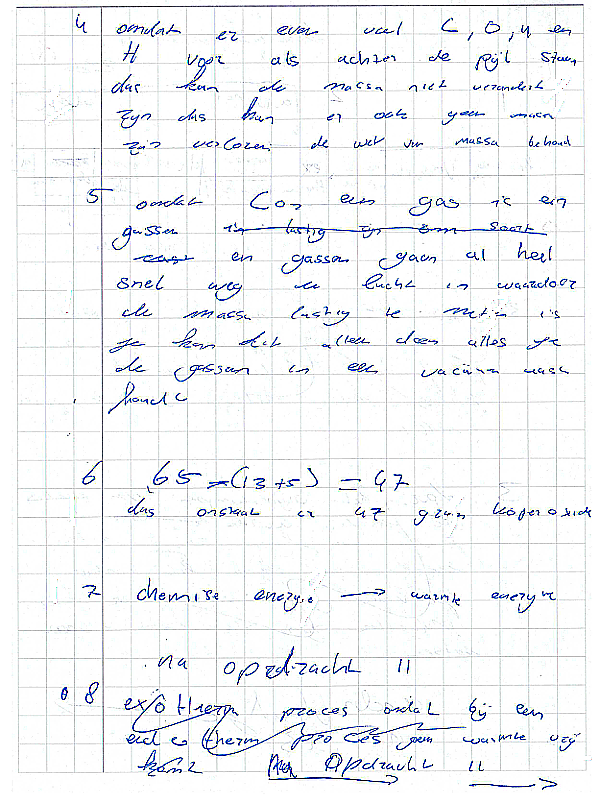 4 omdat er even veel C, O, N en
H voor als achter de pijl staan
dus kan de massa niet verandert
zijn dus kan er ook geen massa
zijn verloren de wet van massa behoud
5 omdat CO2 een gas is en
gassen is lastig
en gassen gaan al heel
snel weg de lucht in waardoor
de massa lastig te meten is
je kan dit alleen doen alles je
de gassen in een vacuum
houdt
6 65 - (13+5) = 47
dus onstaat er 47 gram koperoxide
7 chemise energie → warmte energie
na opdracht 11
8 exo therm proces omdat bij een
endo therm proces geen warmte vrij
komt Na Opdracht 11